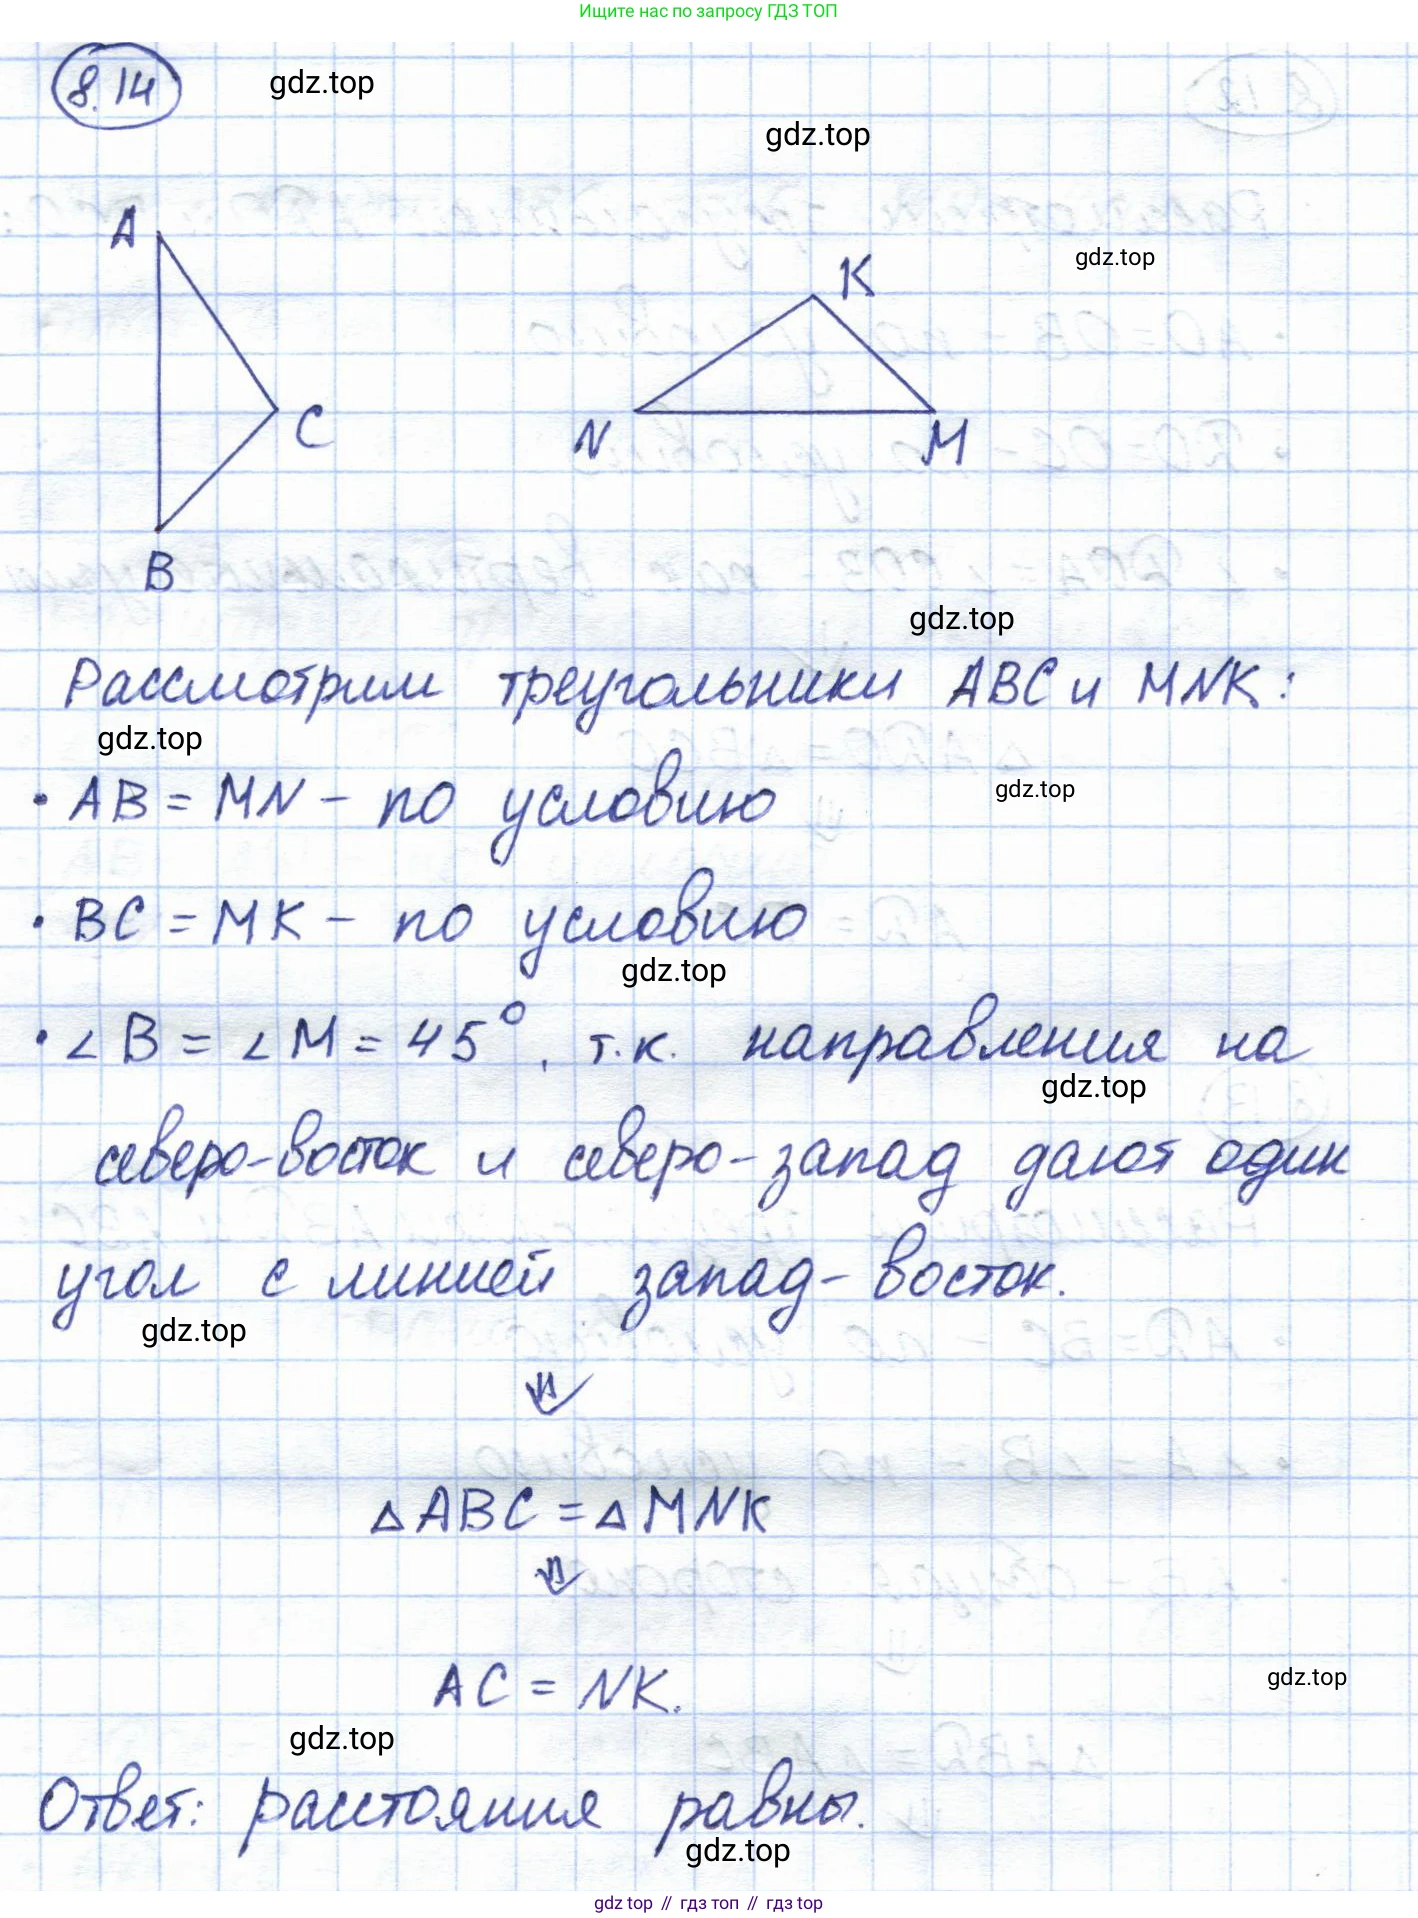 Ищите нас по запросу ГДЗ ТОП
8.14
gdz.top
gdz.top
A
gdz.top
K
C
N
M
B
gdz.top
Рассмотрим треугольники ABC и MNK:
gdz.top
• AB = MN - по условию
gdz.top
• BC = MK - по условию
gdz.top
• ∠B = ∠M = 45°, т.к. направления на
gdz.top
северо-восток и северо-запад дают один
угол с линией запад-восток.
gdz.top
⇓
△ABC = △MNK
⇓
AC = NK.
gdz.top
gdz.top
Ответ: расстояния равны.
gdz.top
gdz top // гдз топ // гдз top